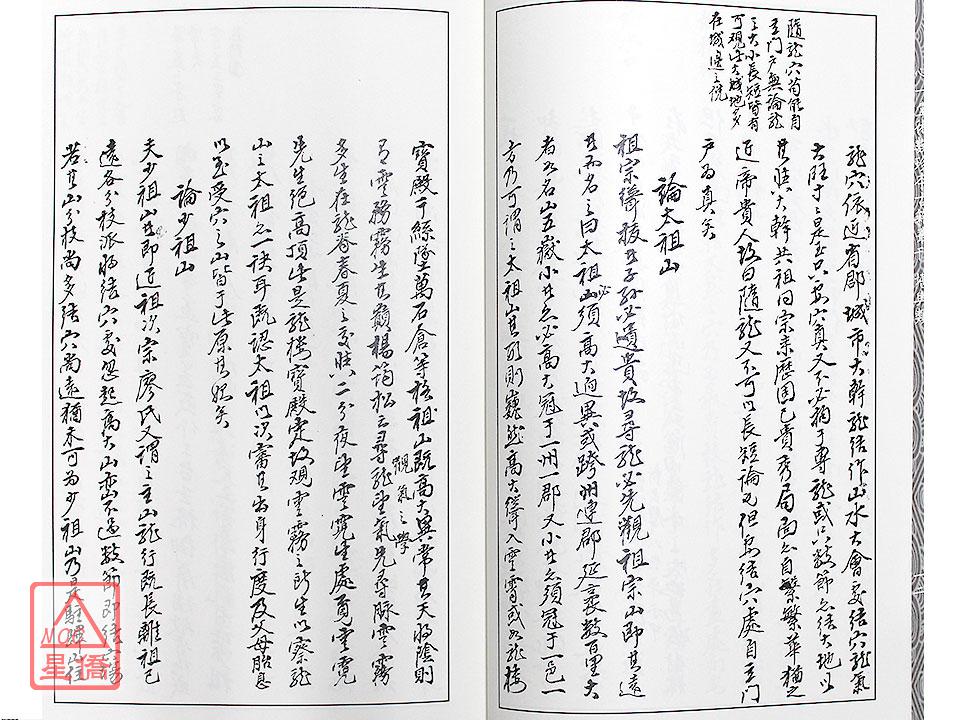 隨龍穴若能自
立門戶無論龍
之大小長短皆有
可觀此大城地多
在城邊之說
龍穴依近省郡城市大幹龍結作山水大會交結穴龍氣
大旺寸寸是玉只要穴真又不必稱于專龍或只數節亦結大地以
其勝大幹共祖同宗來歷固已貴秀局面亦自繁華猶之
近帝貴人故曰隨龍又不可以長短論也但要結穴處自立門
戶為真矣
論太祖山
祖宗綿移其子孫必遺貴故尋龍必先觀祖宗山即其遠
其而名之曰太祖山必須高大迥異或跨州連郡延袤數百里大
者如名山五嶽小其亦必高大冠于一州一郡又小其亦須冠于一邑一
方乃可謂之太祖山其形則巍然高大聳入雲霄或如龍樓
寶殿千絲墜萬石倉等格祖山既高大異常其天將陰則
有雲務霧生其巔楊筠松云尋龍望氣先尋脉雲霧
觀氣之學
多生在龍脊春夏之交勝二分夜望雲霓生處覓雲霓
先生絕高頂此是龍樓寶殿定故觀雲霧之所生以察龍
山之太祖亦一訣耳既認太祖以次審其出身行度及父母胎息
以至受穴之山皆于此原其始矣
論少祖山
夫少祖山其即近祖次宗廖氏又謂之主山龍行既長離祖已
遠各分枝派將結穴處忽起高大山巒不過數節即結穴場
若其山分枝尚多結穴尚遠猶未可為少祖山乃是駐蹕山徑
星僑